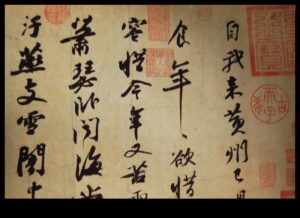 自我來黃州已
食年、欲惜
容惜今年又苦雨
蕭瑟臥聞海
汙燕支雪闇中
古希天子